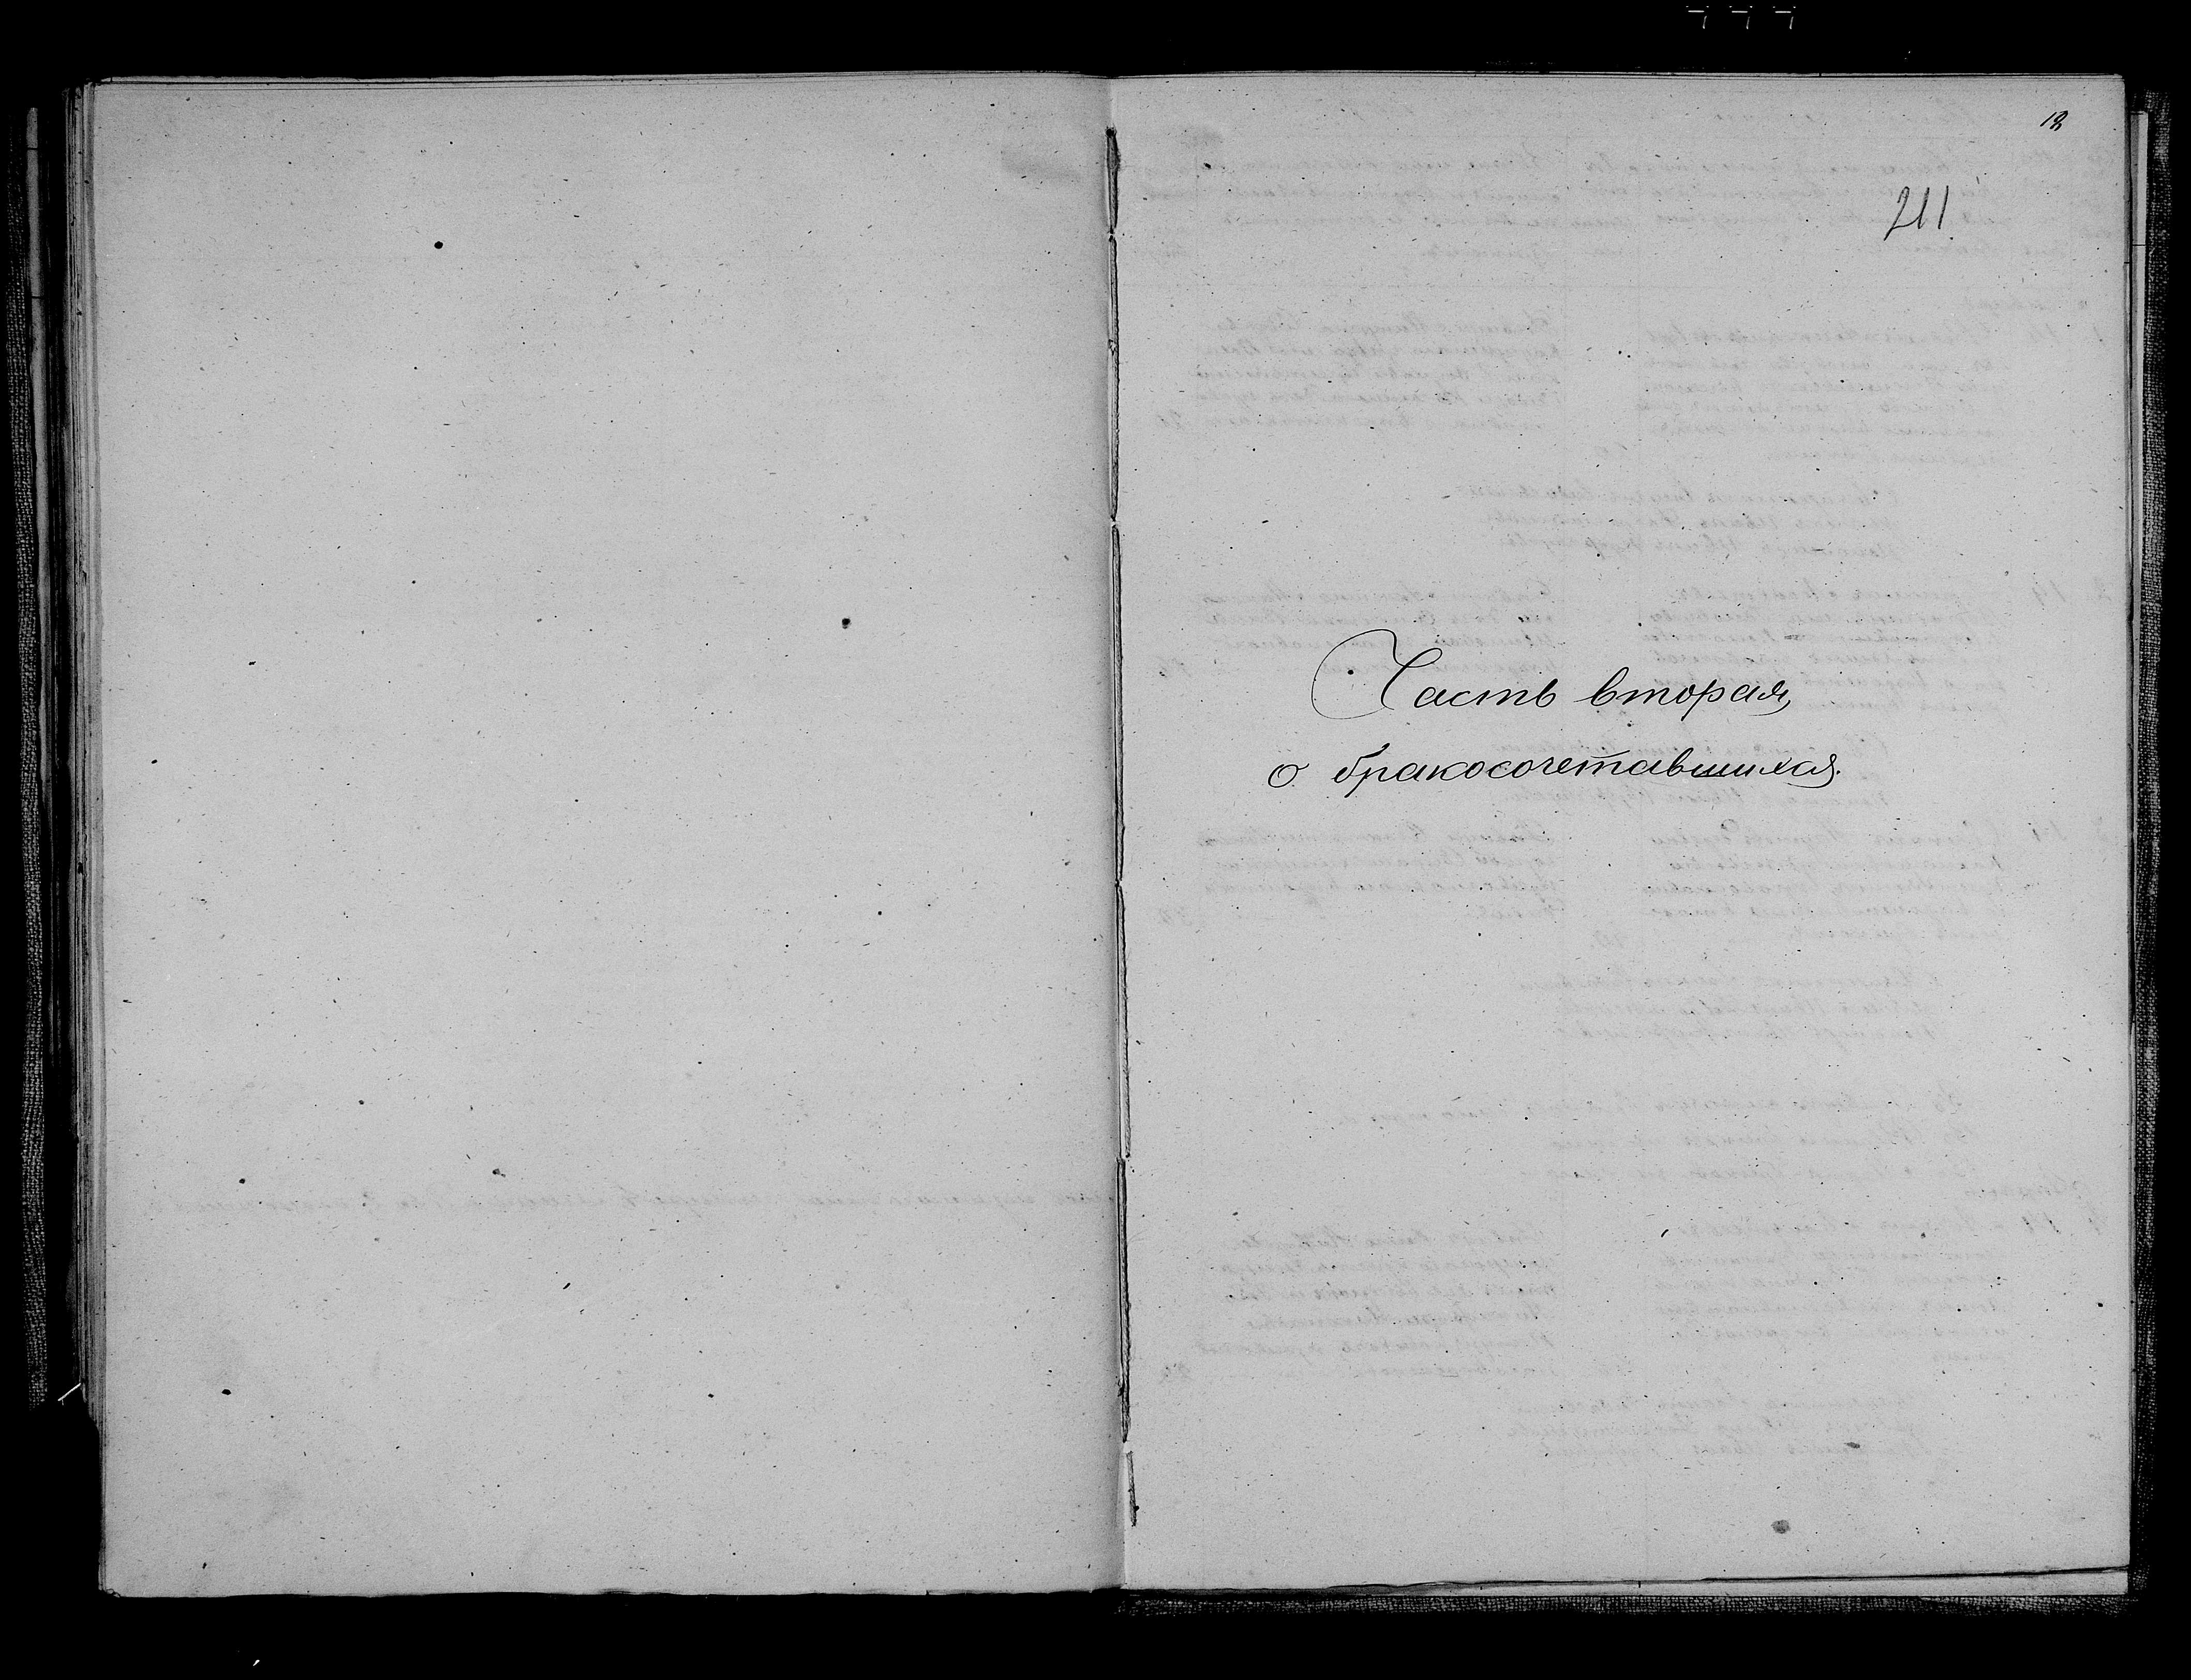 211
Часть вторая,
о бракосочетавшихся.